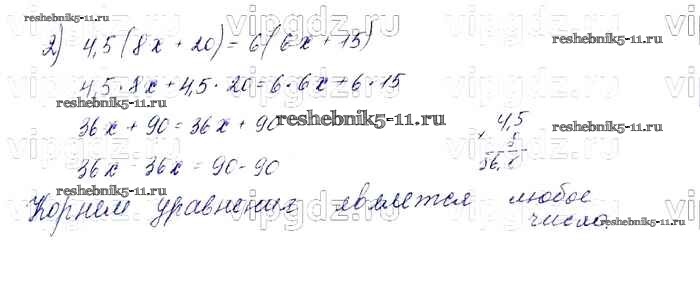 2) 4,5(8x + 20) = 6(6x + 15)
4,5·8x + 4,5·20 = 6·6x + 6·15
36x + 90 = 36x + 90
36x - 36x = 90 - 90
Корнем уравнения является любое
число.
4,5
× 8
36,0
reshebnik5-11.ru
reshebnik5-11.ru
reshebnik5-11.ru
reshebnik5-11.ru
reshebnik5-11.ru
reshebnik5-11.ru
reshebnik5-11.ru
vipgdz.ru
vipgdz.ru
vipgdz.ru